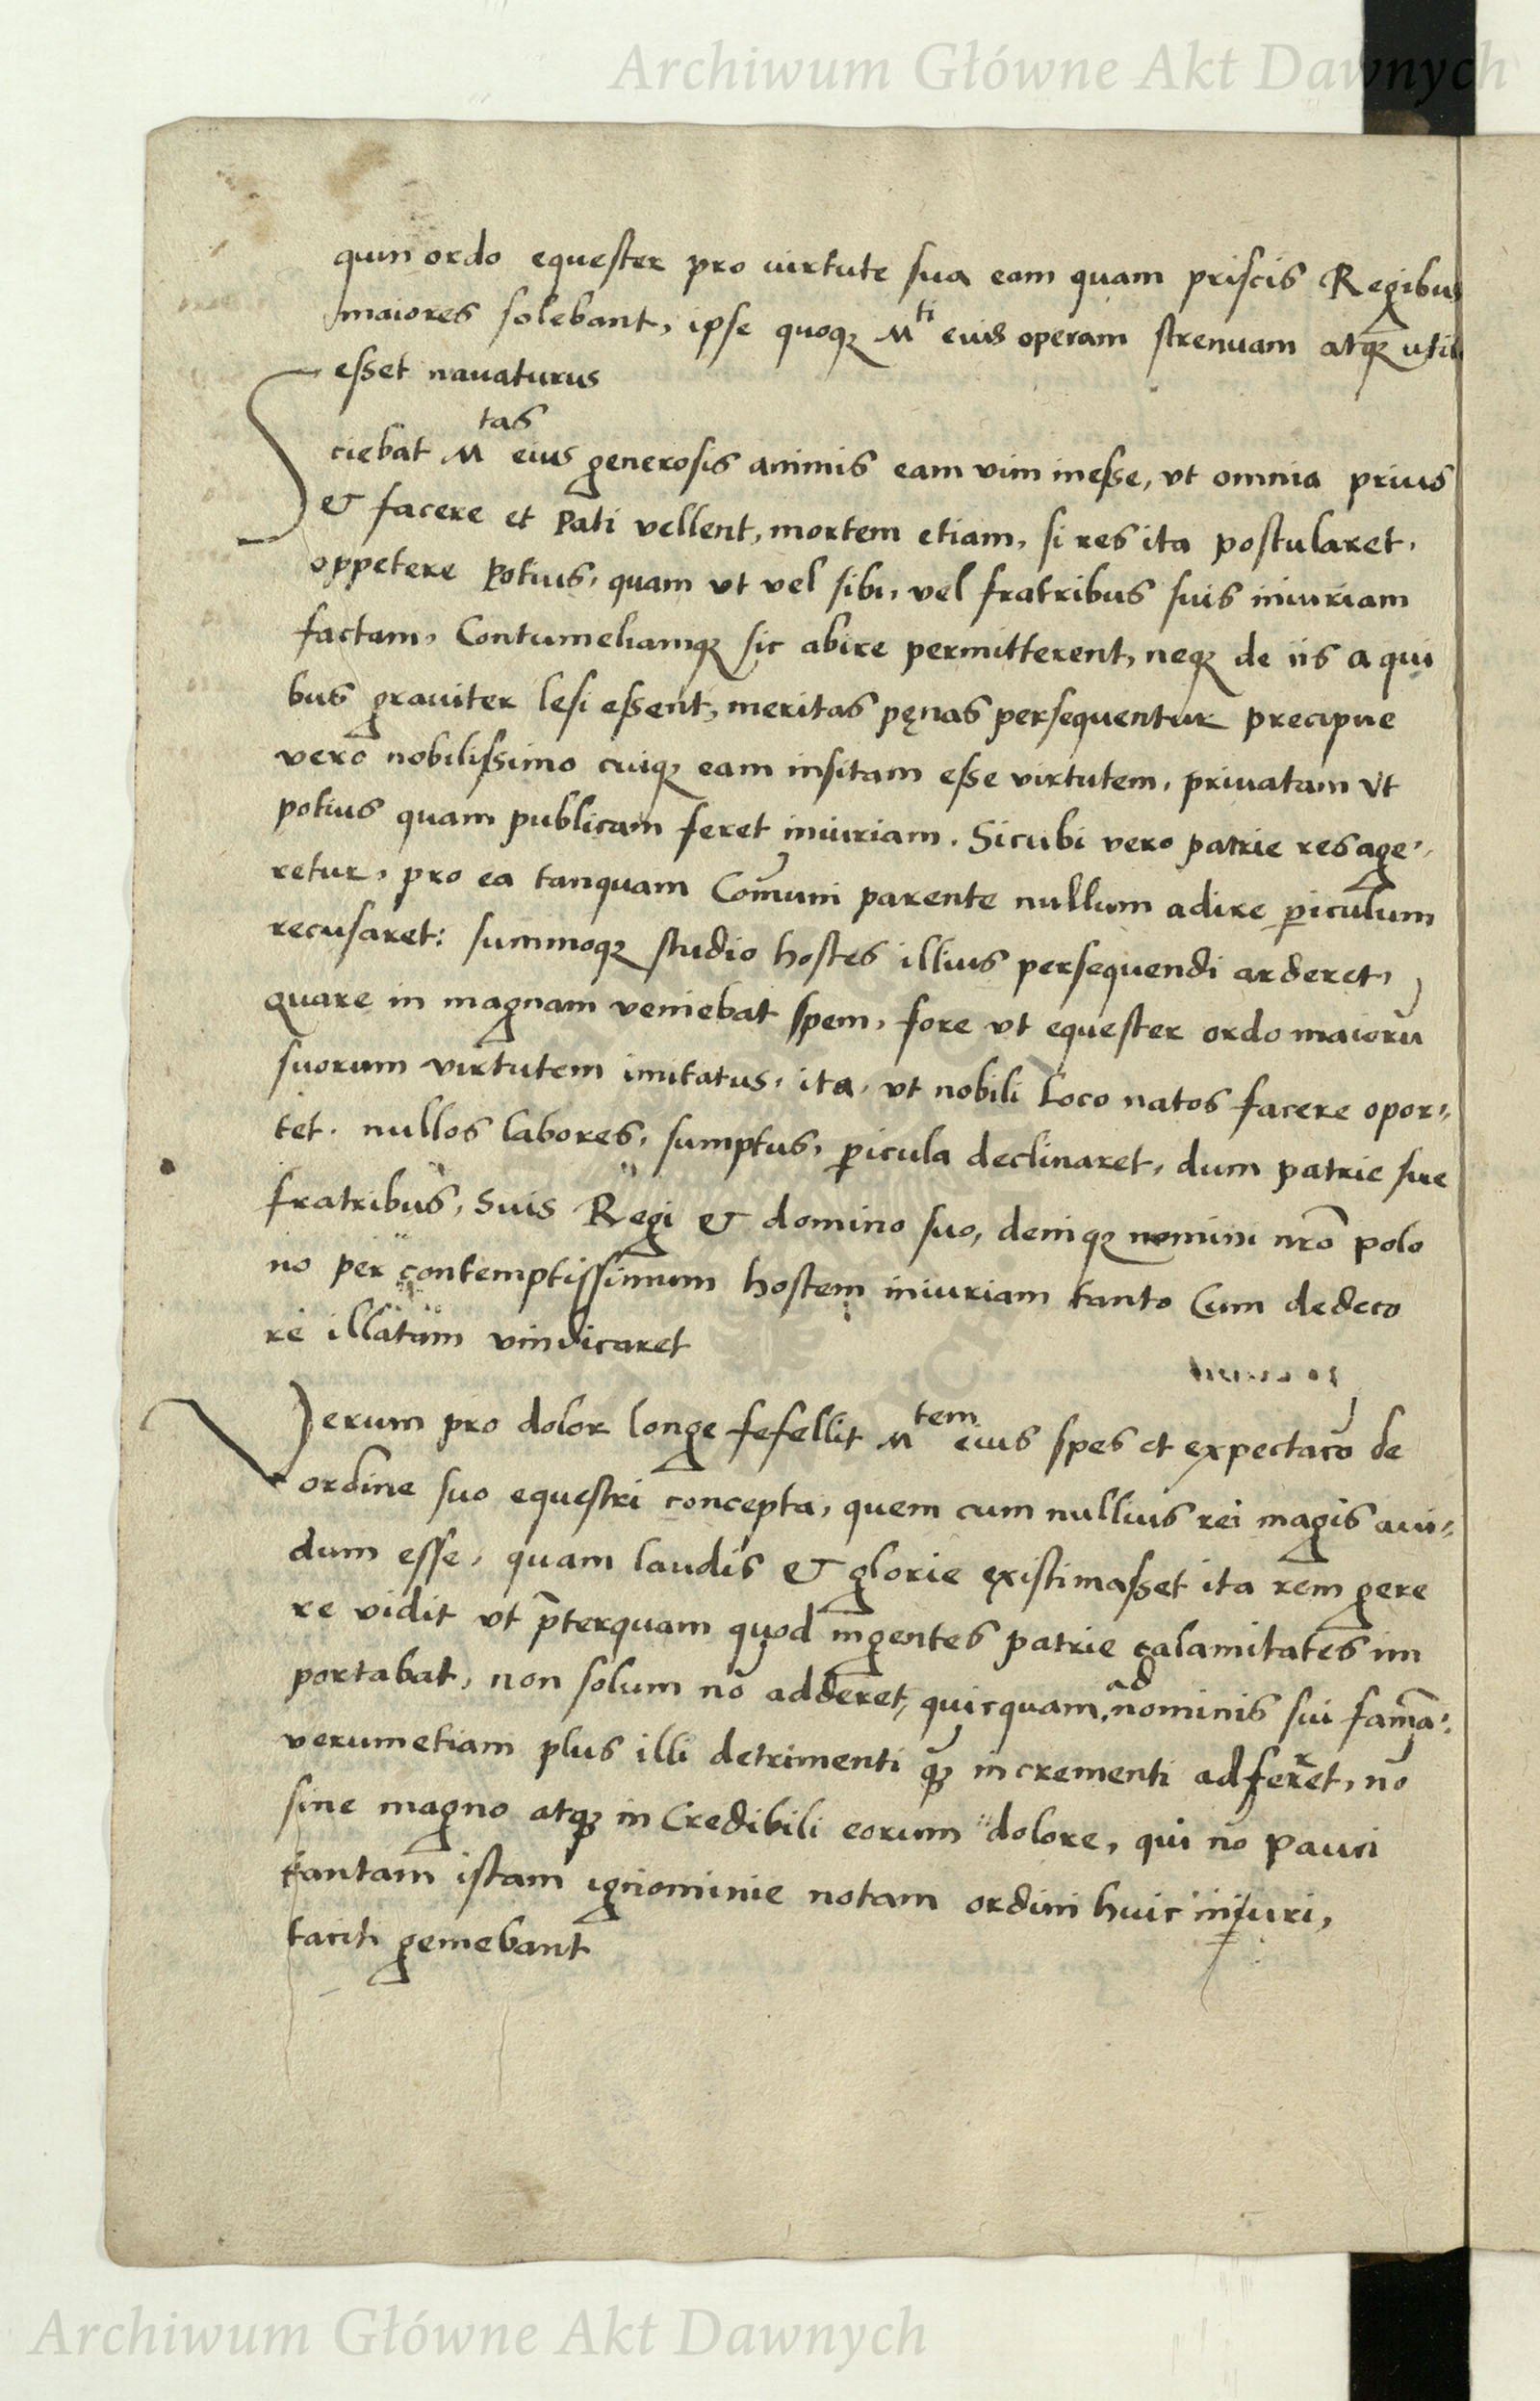 Archiwum Główne Akt Dawnych
quin ordo equester pro uirtute sua eam quam priscis Regibus
maiores solebant, ipse quoqꝫ M^ti eius operam strenuam atqꝫ util
esset nauaturus
Sciebat M^tas eius generosis animis eam vim inesse, vt omnia prius
& facere et pati vellent, mortem etiam, si res ita postularet,
oppetere potius, quam vt vel sibi, vel fratribus suis iniuriam
factam, Contumeliamqꝫ sic abire permitterent, neqꝫ de iis a qui
bus grauiter lesi essent, meritas pęnas persequentur precipue
vero nobilissimo cuiqꝫ eam insitam esse virtutem, priuatam vt
potius quam publicam feret iniuriam. Sicubi vero patrie res age⸗
retur, pro ea tanquam Com̃uni parente nullum adire ꝑiculum
recusaret: summoqꝫ studio hostes illius persequendi arderet,
quare in magnam veniebat spem, fore vt equester ordo maiorũ
suorum virtutem imitatus, ita, vt nobili loco natos facere opor⸗
tet. nullos labores, sumptus, ꝑicula declinaret, dum patrie sue
fratribus, Suis Regi & domino suo, deniqꝫ nomini nr̃o polo
no per contemptissimum hostem iniuriam tanto Cum dedeco
re illatam vindicaret
Verum pro dolor longe fefellit M^tem eius spes et expectac̃o de
ordine suo equestri concepta, quem cum nullius rei magis aui⸗
dum esse, quam laudis & glorie existimasset ita rem gere
re vidit vt p̃terquam quod ingentes patrie calamitates im
portabat, non solum nõ adderet, quicquam ad nominis sui famã:
verumetiam plus illi detrimenti qꝫ incrementi adferret, nõ
sine magno atqꝫ in Credibili eorum dolore, qui nõ pauci
tantam istam ignominie notam ordini huic iniuri,
taciti gemebant
Archiwum Główne Akt Dawnych